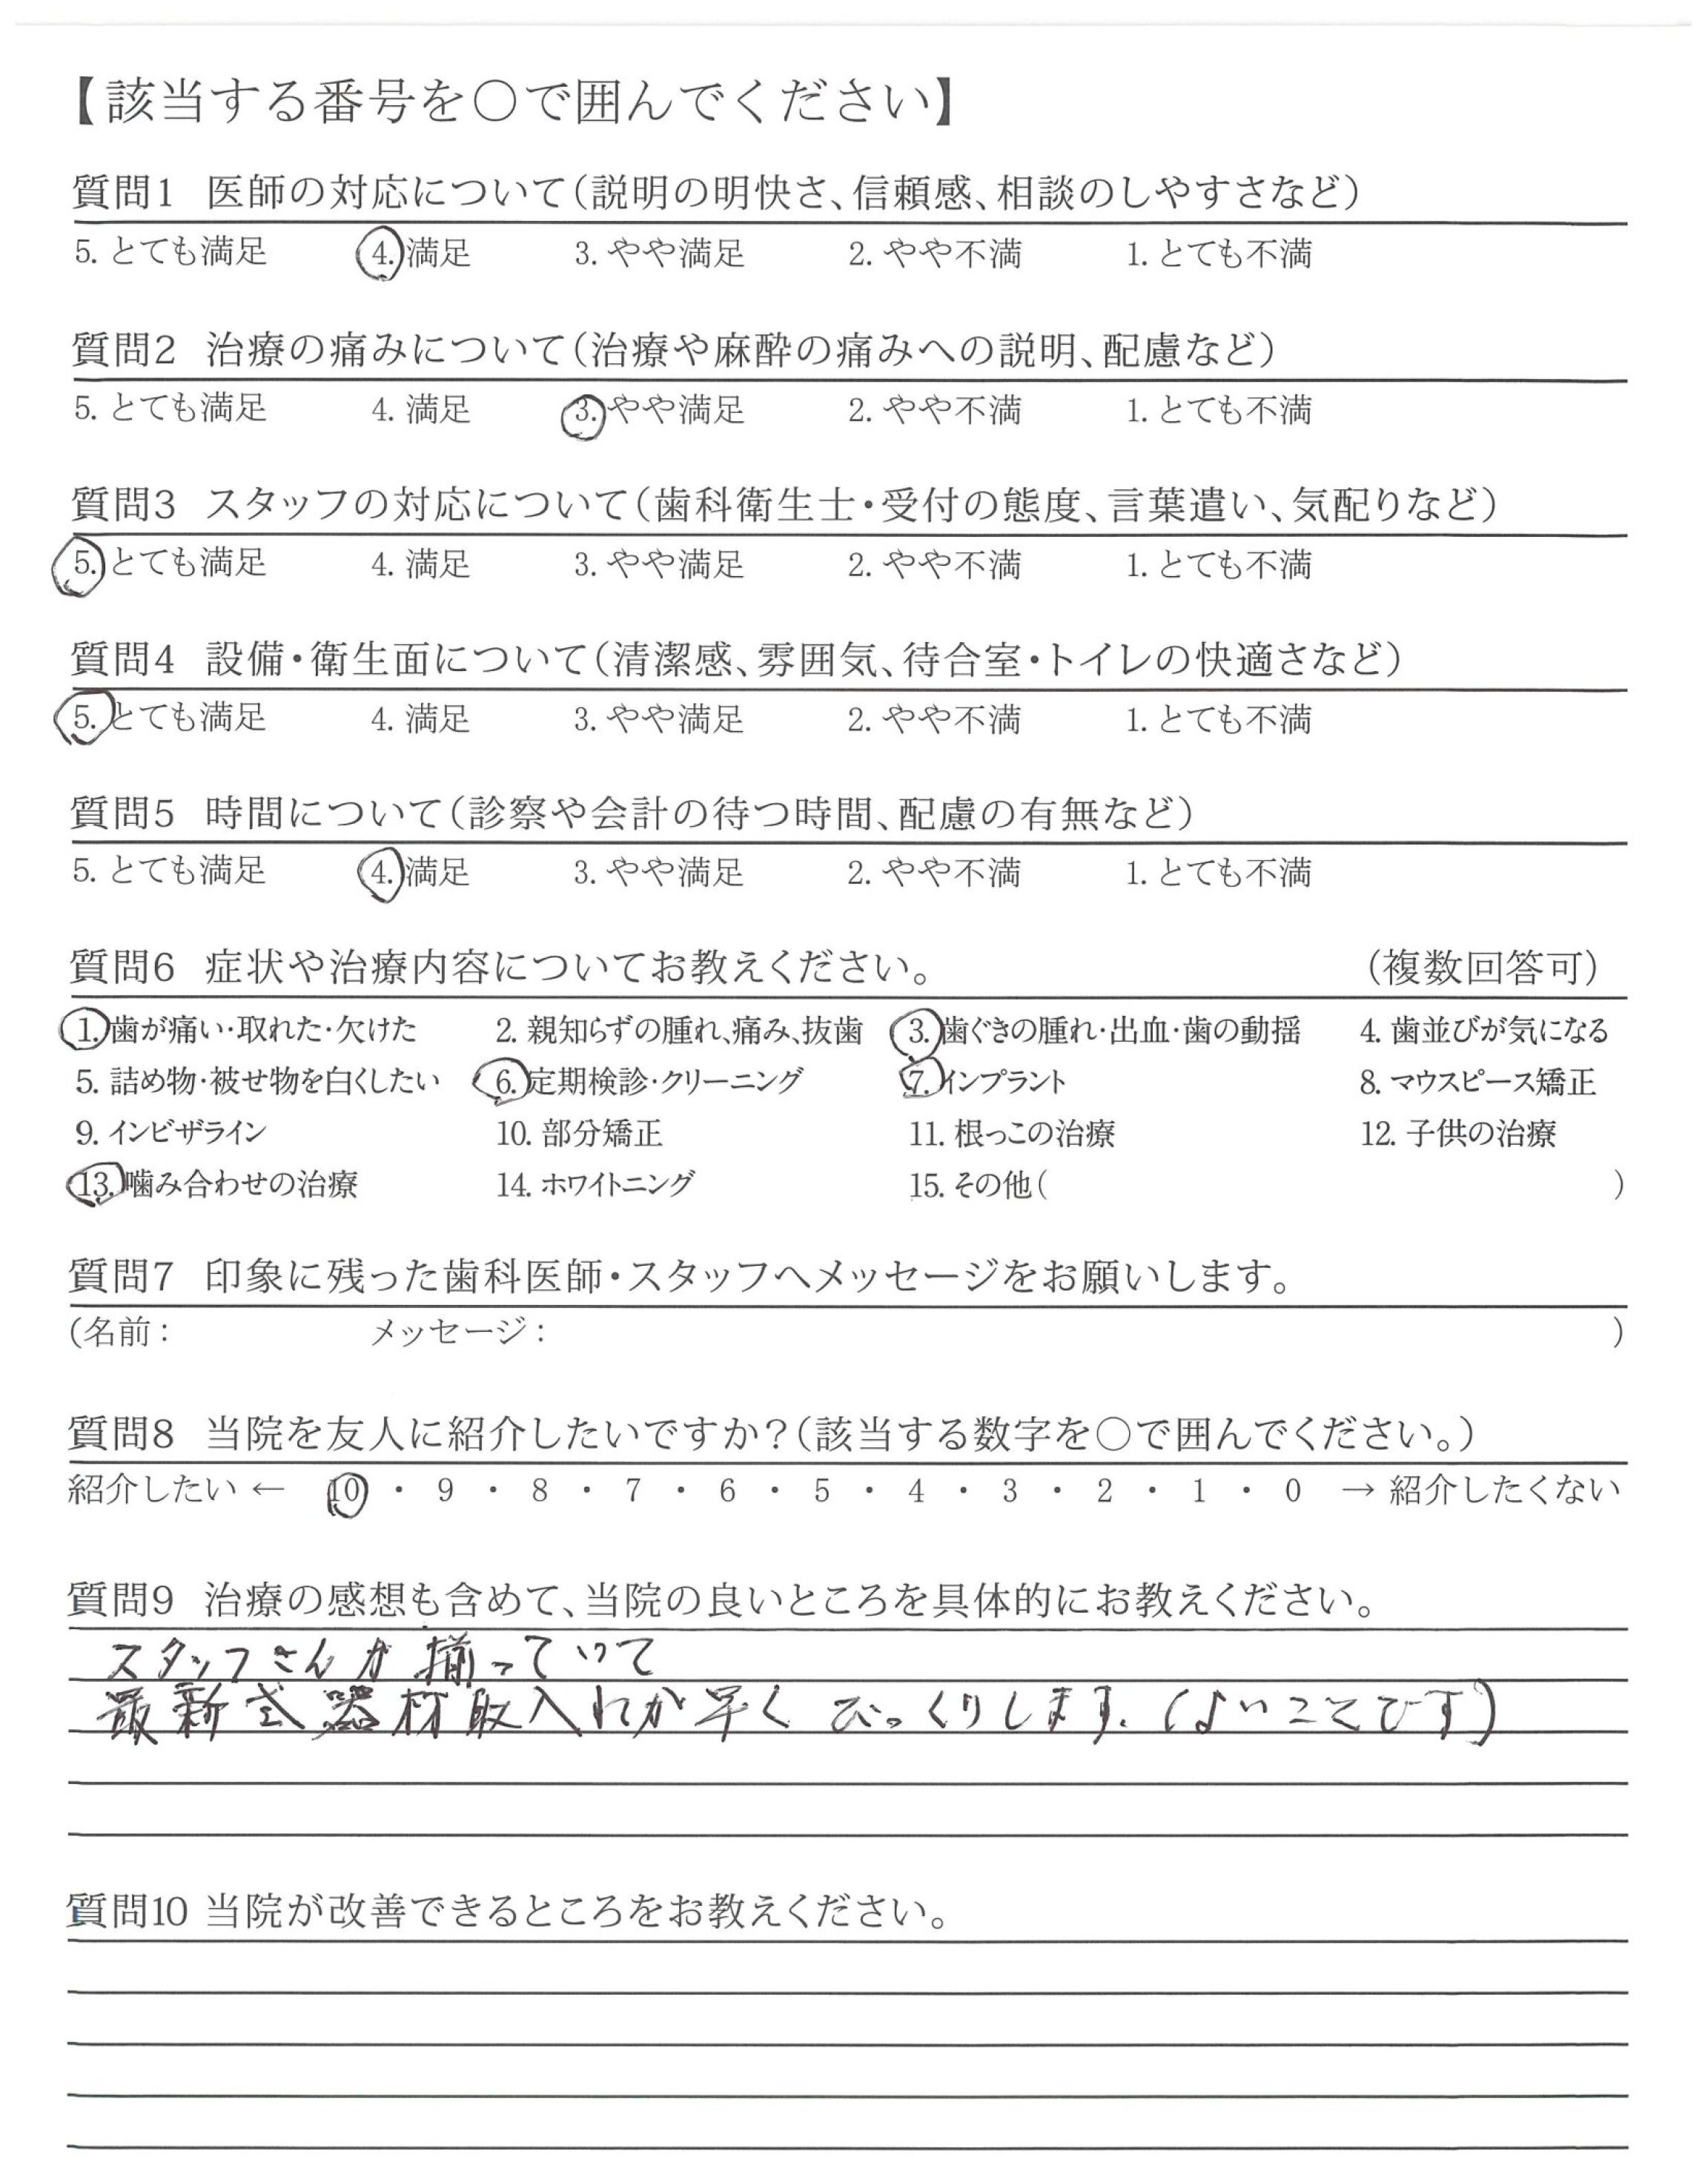 【該当する番号を○で囲んでください】
質問1 医師の対応について（説明の明快さ、信頼感、相談のしやすさなど）
5. とても満足 4. 満足 3. やや満足 2. やや不満 1. とても不満
質問2 治療の痛みについて（治療や麻酔の痛みへの説明、配慮など）
5. とても満足 4. 満足 3. やや満足 2. やや不満 1. とても不満
質問3 スタッフの対応について（歯科衛生士・受付の態度、言葉遣い、気配りなど）
5. とても満足 4. 満足 3. やや満足 2. やや不満 1. とても不満
質問4 設備・衛生面について（清潔感、雰囲気、待合室・トイレの快適さなど）
5. とても満足 4. 満足 3. やや満足 2. やや不満 1. とても不満
質問5 時間について（診察や会計の待つ時間、配慮の有無など）
5. とても満足 4. 満足 3. やや満足 2. やや不満 1. とても不満
質問6 症状や治療内容についてお教えください。 （複数回答可）
1. 歯が痛い・取れた・欠けた 2. 親知らずの腫れ、痛み、抜歯 3. 歯ぐきの腫れ・出血・歯の動揺 4. 歯並びが気になる
5. 詰め物・被せ物を白くしたい 6. 定期検診・クリーニング 7. インプラント 8. マウスピース矯正
9. インビザライン 10. 部分矯正 11. 根っこの治療 12. 子供の治療
13. 噛み合わせの治療 14. ホワイトニング 15. その他（ ）
質問7 印象に残った歯科医師・スタッフへメッセージをお願いします。
（名前： メッセージ： ）
質問8 当院を友人に紹介したいですか？（該当する数字を○で囲んでください。）
紹介したい ← 10 ・ 9 ・ 8 ・ 7 ・ 6 ・ 5 ・ 4 ・ 3 ・ 2 ・ 1 ・ 0 → 紹介したくない
質問9 治療の感想も含めて、当院の良いところを具体的にお教えください。
スタッフさんが揃っていて
最新式器材取入れが早くびっくりします.（よいことです）
質問10 当院が改善できるところをお教えください。